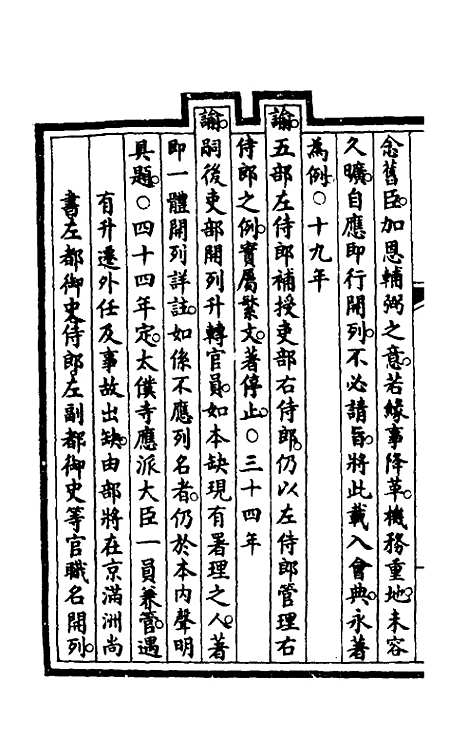 念舊臣。加恩輔弼之意。若緣事降革。機務重地。未容
久曠。自應即行開列。不必請旨。將此載入會典。永著
為例。○十九年
諭。五部左侍郎補授吏部右侍郎。仍以左侍郎管理右
侍郎之例。實屬繁文。著停止。○三十四年
諭。嗣後吏部開列升轉官員。如本缺現有署理之人。著
即一體開列詳註。如係不應列名者。仍於本內聲明
具題。○四十四年定。太僕寺應派大臣一員兼管。遇
有升遷外任及事故出缺。由部將在京滿洲尚
書左都御史。侍郎。左副都御史等官職名開列。